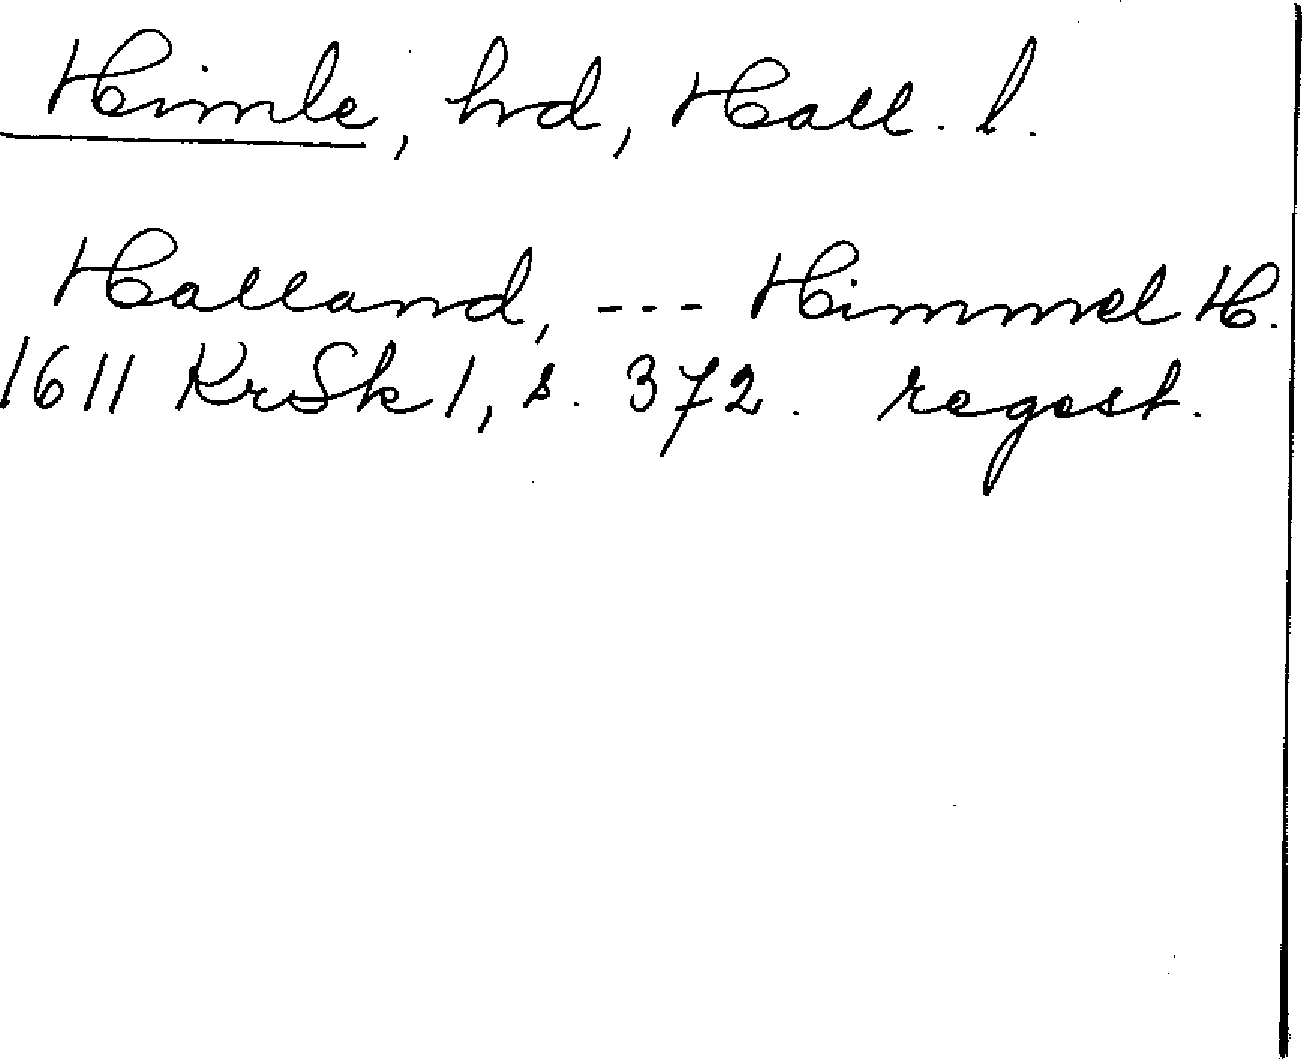 Himle, hd, Hall. l.
Halland, --- Himmel H.
1611 KrSk 1, s. 372. regest.